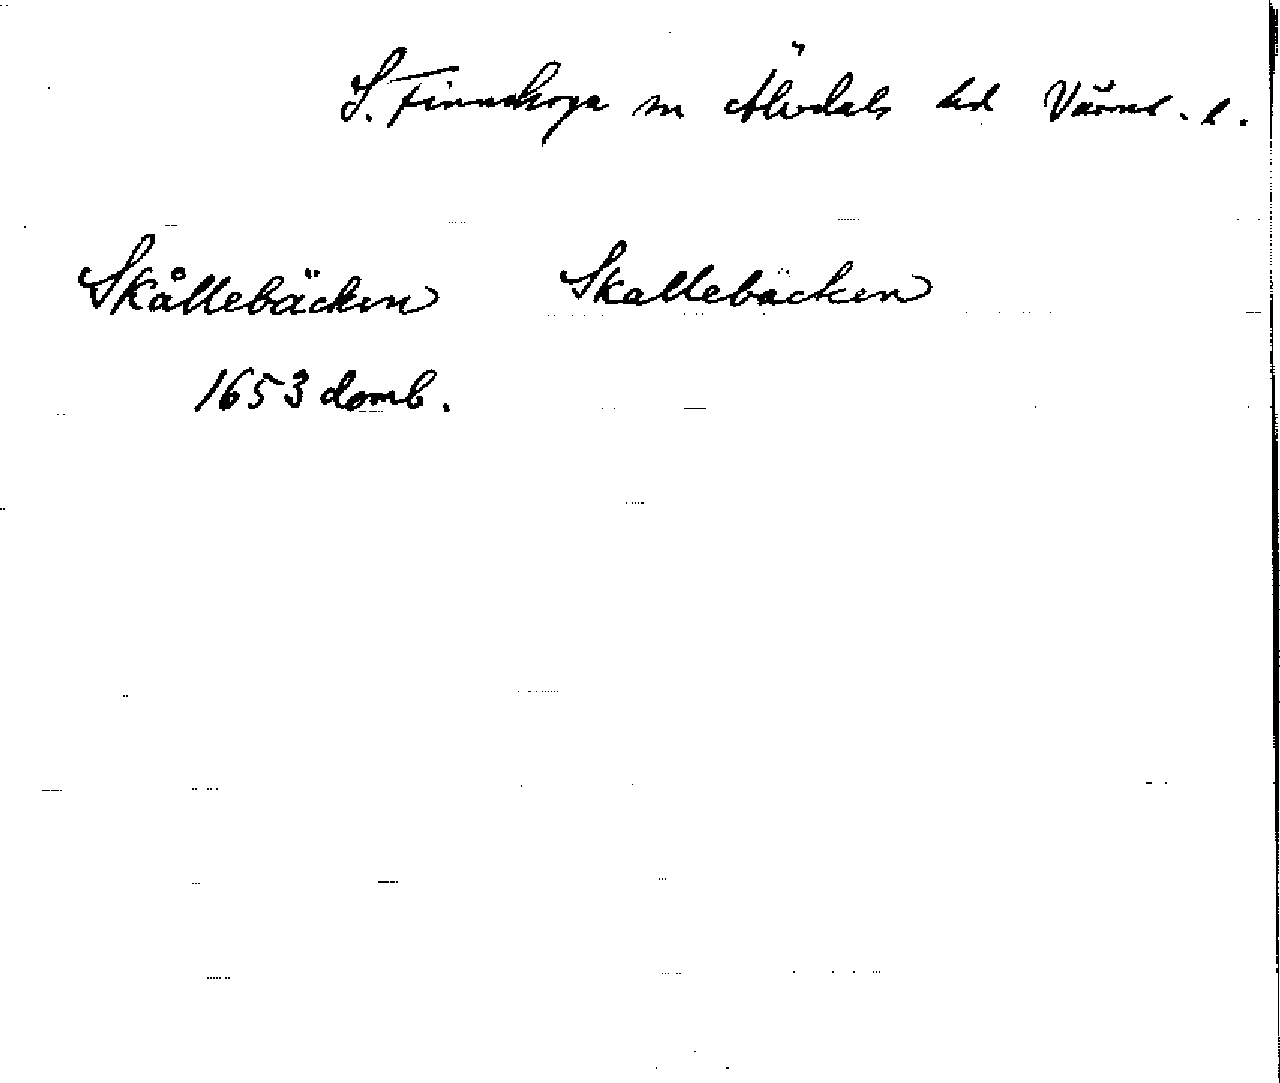 S. Finnskoga sn Älvdals hd Värml. l.
Skållebäcken Skallebäcken
1653 domb.